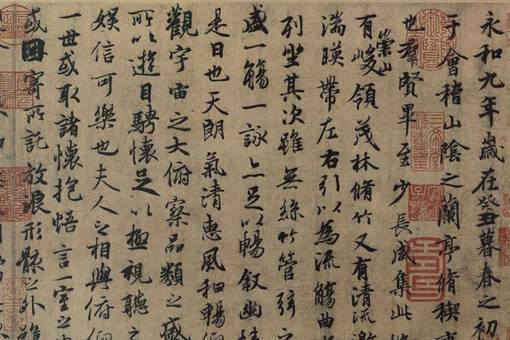 永和九年歲在癸丑暮春之初
于會稽山陰之蘭亭脩稧事
也羣賢畢至少長咸集此
有崇山峻領茂林脩竹又有清流激
湍暎帶左右引以為流觴曲
列坐其次雖無絲竹管弦之
盛一觴一詠亦足以暢叙幽情
是日也天朗氣清惠風和暢仰
觀宇宙之大俯察品類之盛
所以遊目騁懷足以極視聽之
娛信可樂也夫人之相與俯仰
一世或取諸懷抱悟言一室之
或因寄所託放浪形骸之外雖